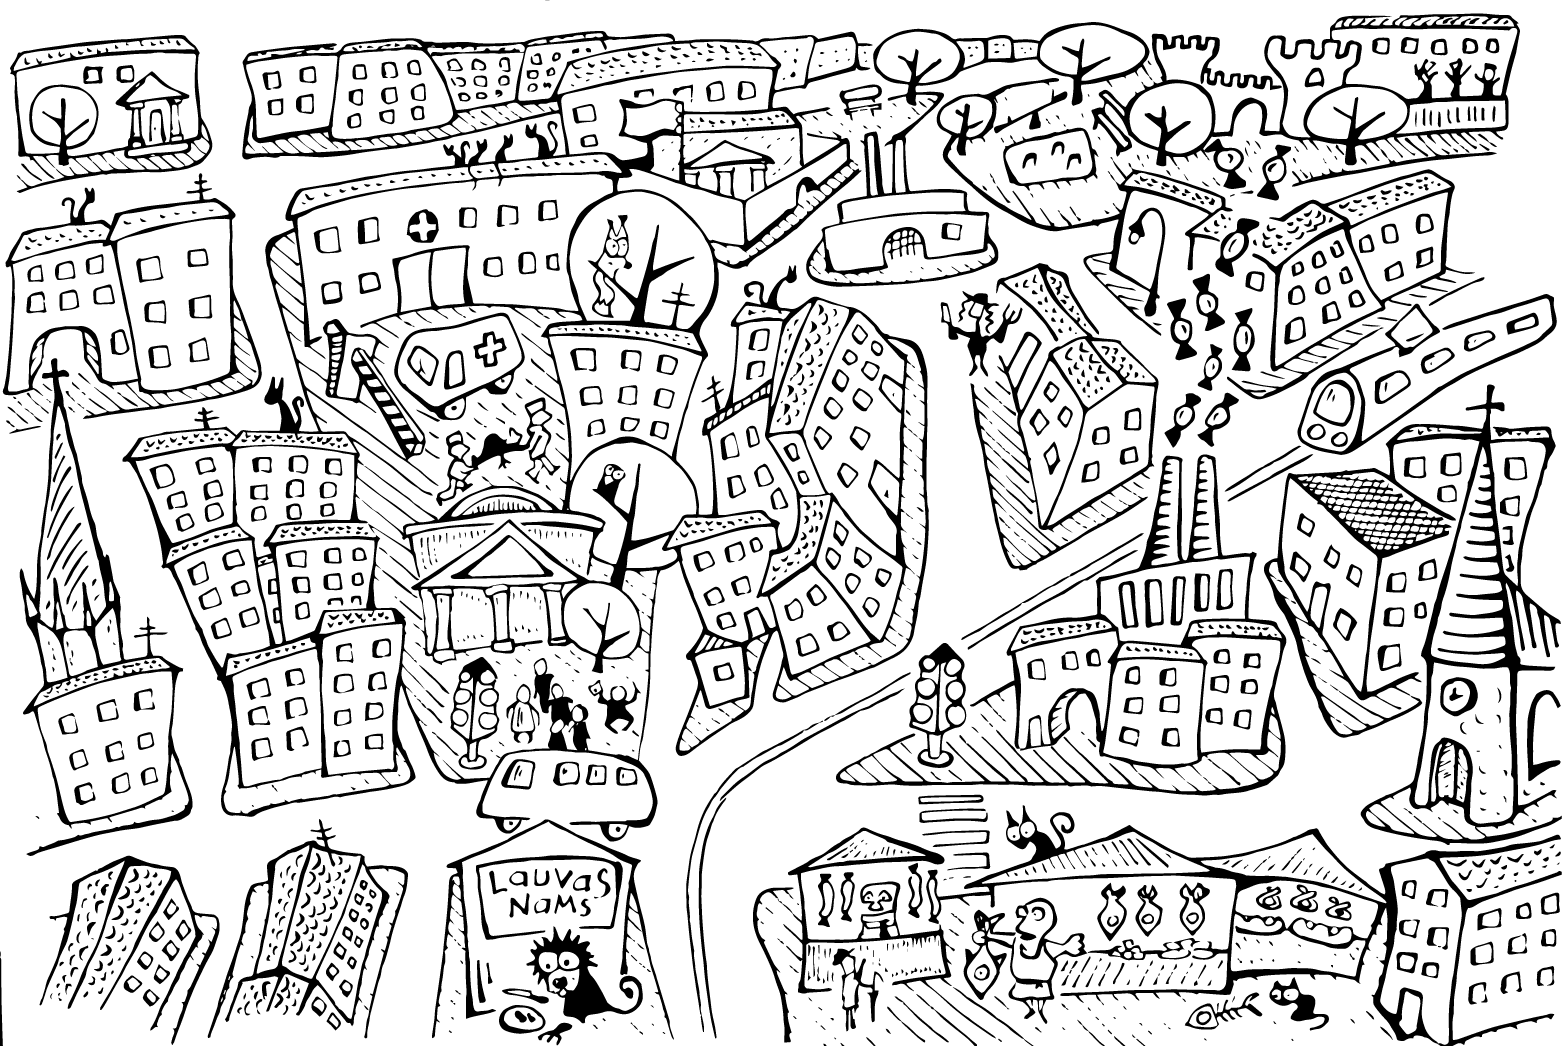 Lauvas
Nams